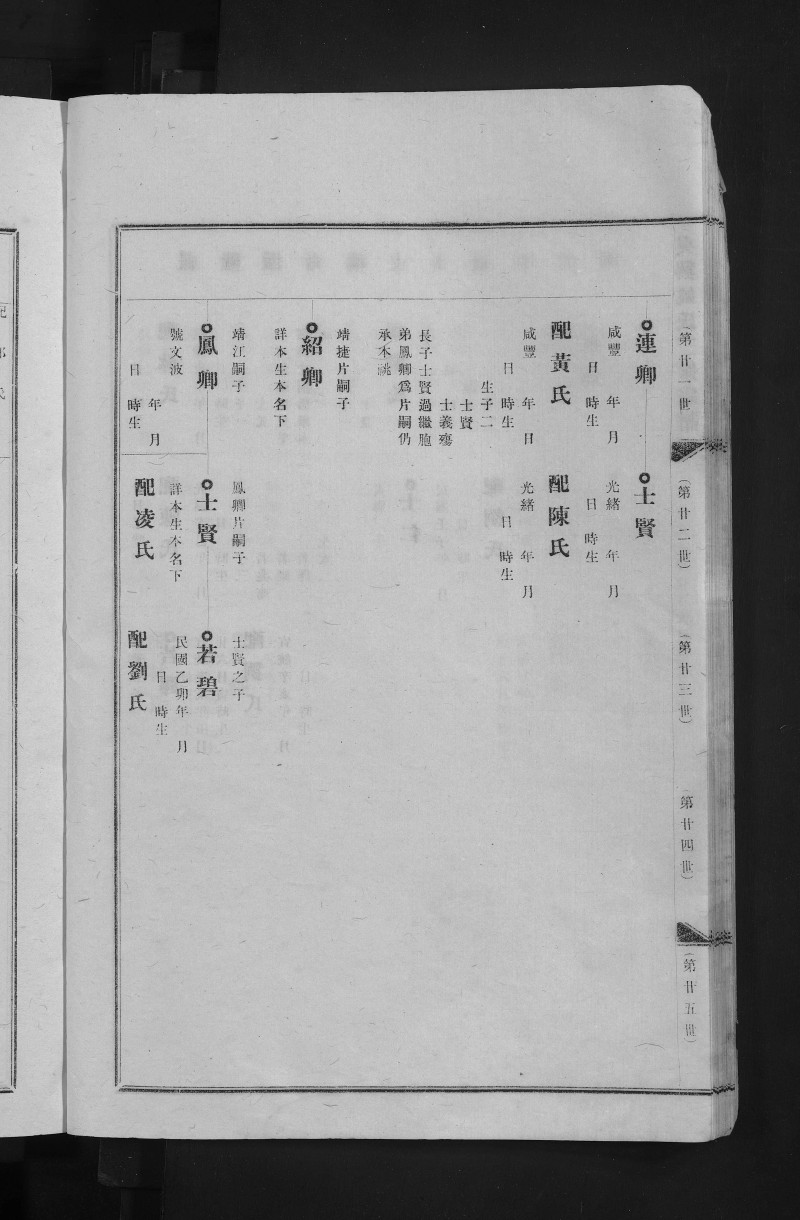 (第廿一世)
(第廿二世)
(第廿三世)
(第廿四世)
(第廿五世)
連卿
咸豐 年 月
日 時生
配黃氏
咸豐 年 日
日 時生
生子二
士賢
士義殤
長子士賢過繼胞
弟鳳卿爲片嗣仍
承本祧
士賢
光緒 年 月
日 時生
配陳氏
光緒 年 月
日 時生
靖捷片嗣子
紹卿
詳本生本名下
靖江嗣子
鳳卿
號文波
年 月
日 時生
鳳卿片嗣子
士賢
詳本生本名下
配凌氏
士賢之子
若碧
民國乙卯年 月
日 時生
配劉氏